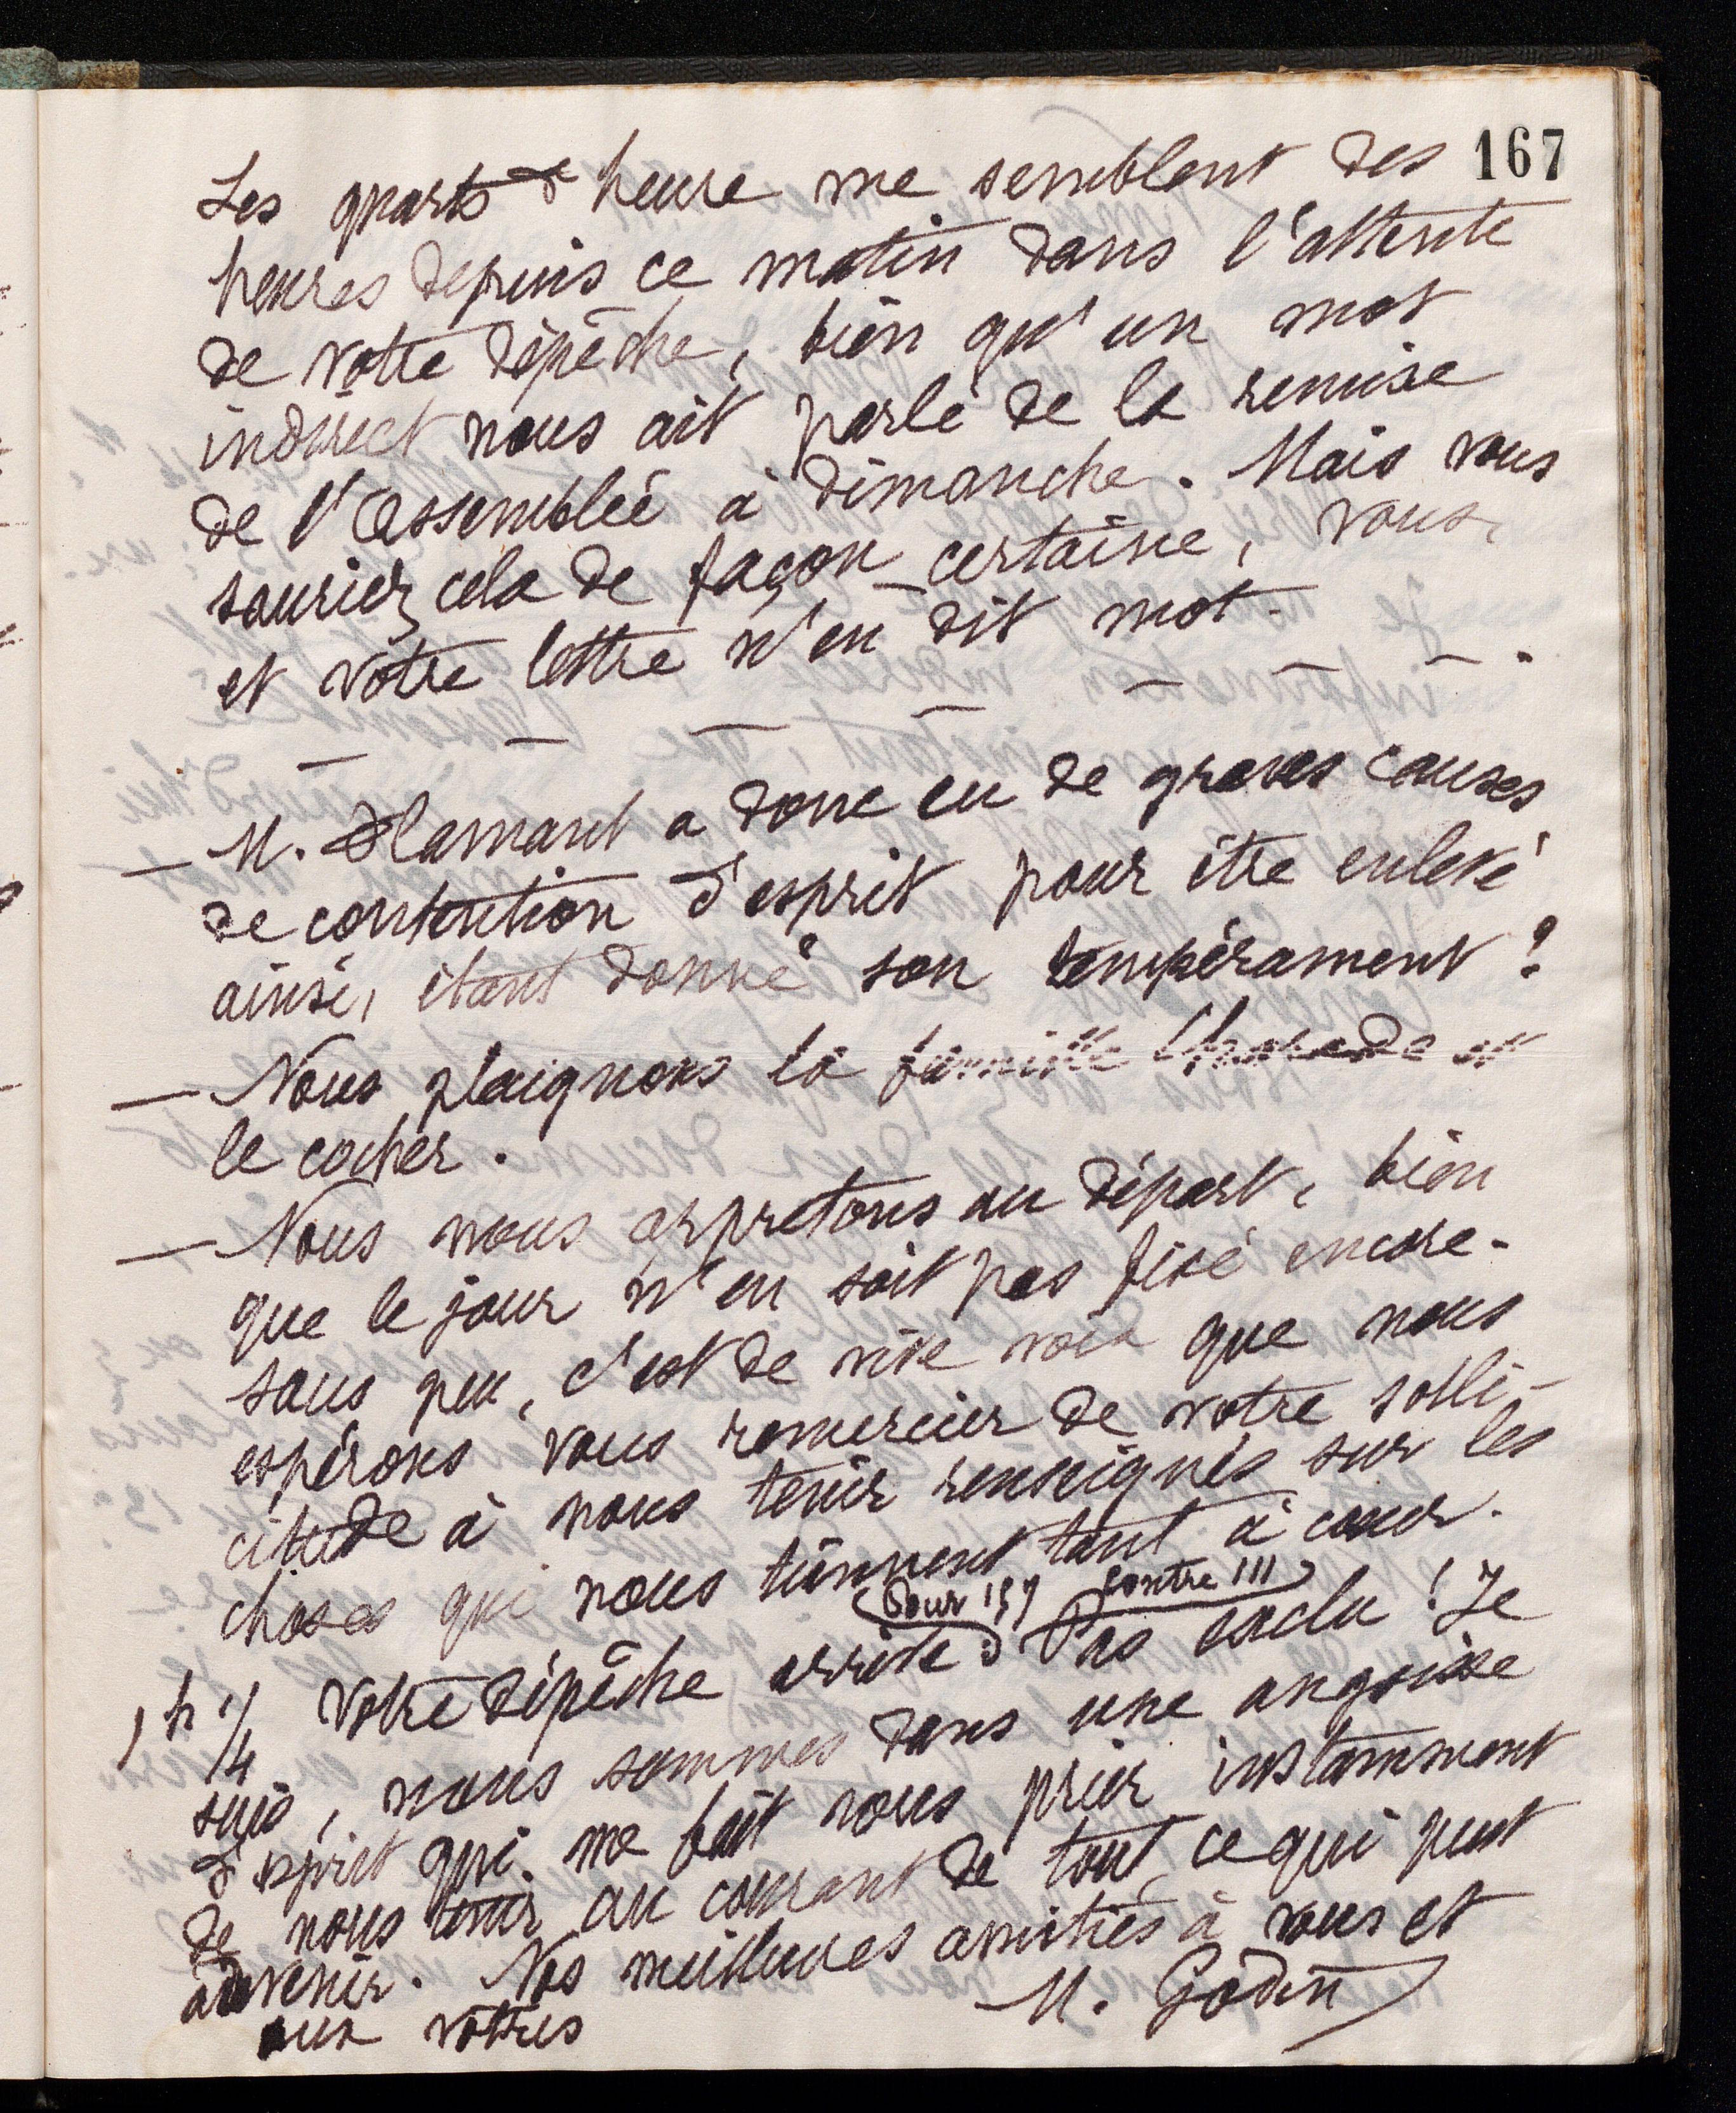 167
Les quarts d'heure me semblent des
heures depuis ce matin dans l'attente
de votre dépêche, bien qu'un mot
indirect nous ait parlé de la remise
de l'assemblée à dimanche. Mais vous
sauriez cela de façon certaine, vous,
et votre lettre n'en dit mot.
— — — — — — — .
— M. Alamant a donc eu de graves causes
de contention d'esprit pour être enlevé
ainsi, étant donné son tempérament ?
— Nous plaignons la famille et
le cocher.
— Nous nous apprêtons au départ, bien
que le jour n'en soit pas fixé encore.
sous peu, c'est de vive voix que nous
espérons vous remercier de votre solli-
citude à nous tenir renseignés sur les
choses qui nous tiennent tant à cœur.
(Pour 157 contre 111)
1 h 1/4 Votre dépêche arrive : Pas exclu ! Je
suis, nous sommes dans une angoisse
d'esprit qui me fait vous prier instamment
de nous tenir au courant de tout ce qui peut
advenir. Nos meilleures amitiés à vous et
aux vôtres
M. Godin